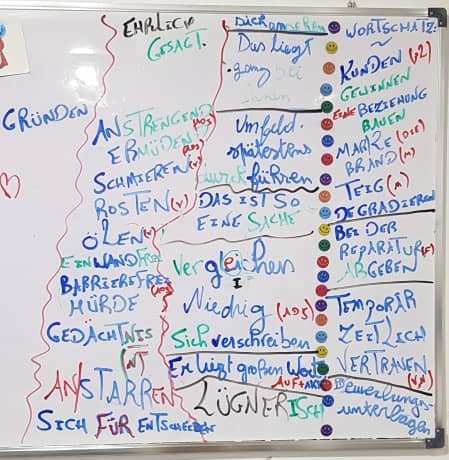 GRÜNDEN
EHRLICH
GESAGT.
ANSTRENGEND
(ADJ)
ERMÜDEN
(ADJ)
SCHMIEREN (V)
ROSTEN (V)
ÖLEN (V)
EINWANDFREI
BARRIEREFREI
(ADJ)
HÜRDE
GEDÄCHTNIS
(N)
ANSTARREN
SICH FÜR ENTSCHEIDEN
Das liegt
ganz bei
ihnen
Umfeld.
spätestens
durchführen
DAS IST SO
EINE SACHE
Vergleichen
I
Niedrig (ADJ)
Sich verschreiben
Er legt großen Wert
AUF + AKK
LÜGNERISCH
WORTSCHATZ:
KUNDEN
GEWINNEN
EINE BEZIEHUNG
BAUEN
MARKE (DIE)
BRAND (M)
TEIG (M)
DEGRADIEREN
BEI DER
REPARATUR (F)
ABGEBEN
TEMPORÄR
ZEITLICH
VERTRAUEN
Bewerbungs-
unterlagen